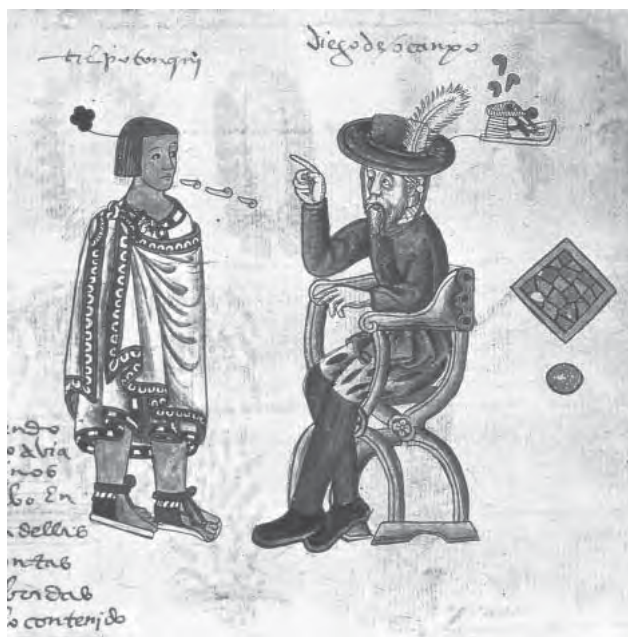 tlilpotonqui
diego de ocanpo
ando
o avia
nos
bo En
dellis
ntas
bridas
o contenido